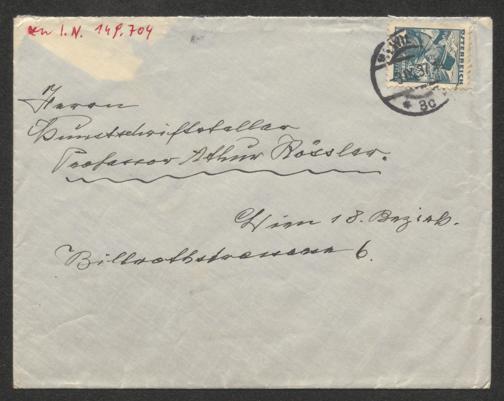 zu I.N. 149.704
ÖSTERREICH
* 8c
Herrn
Kunstschriftsteller
Professor Athur Rössler.
Wien 18. Bezirk.
Billrothstrasse 6.